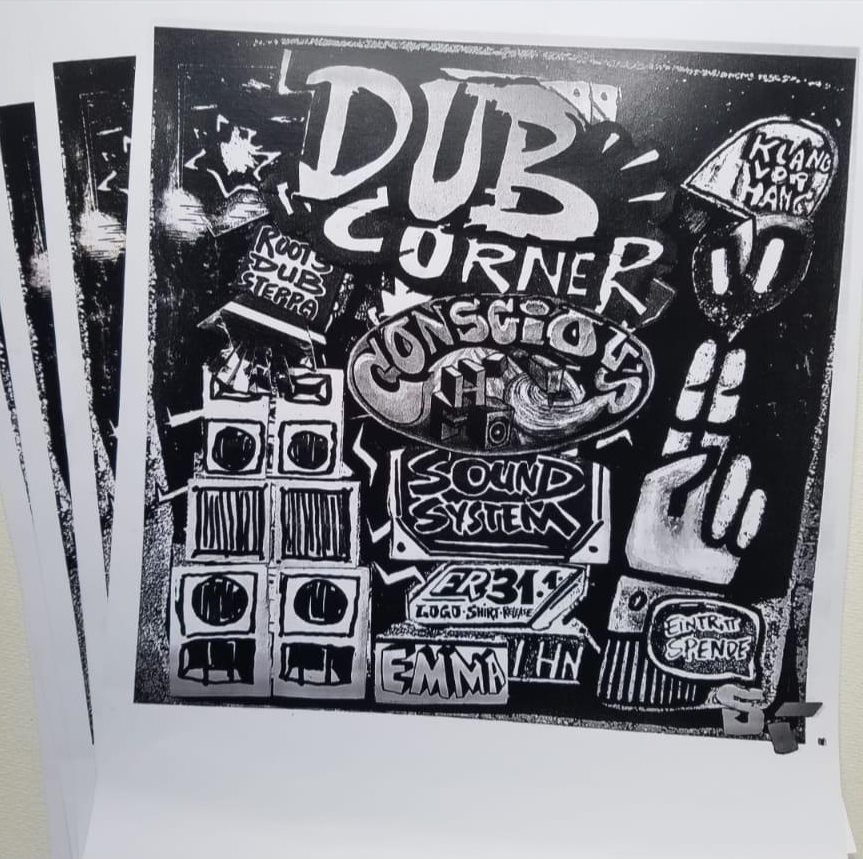 DUB
CORNER
KLANG
VOR
HANG
ROOTS
DUB
STEPPA
CONSCIOUS
SOUND
SYSTEM
FR 31.1
LOGO·SHIRT·RELEASE
EMMA | HN
EINTRITT
SPENDE